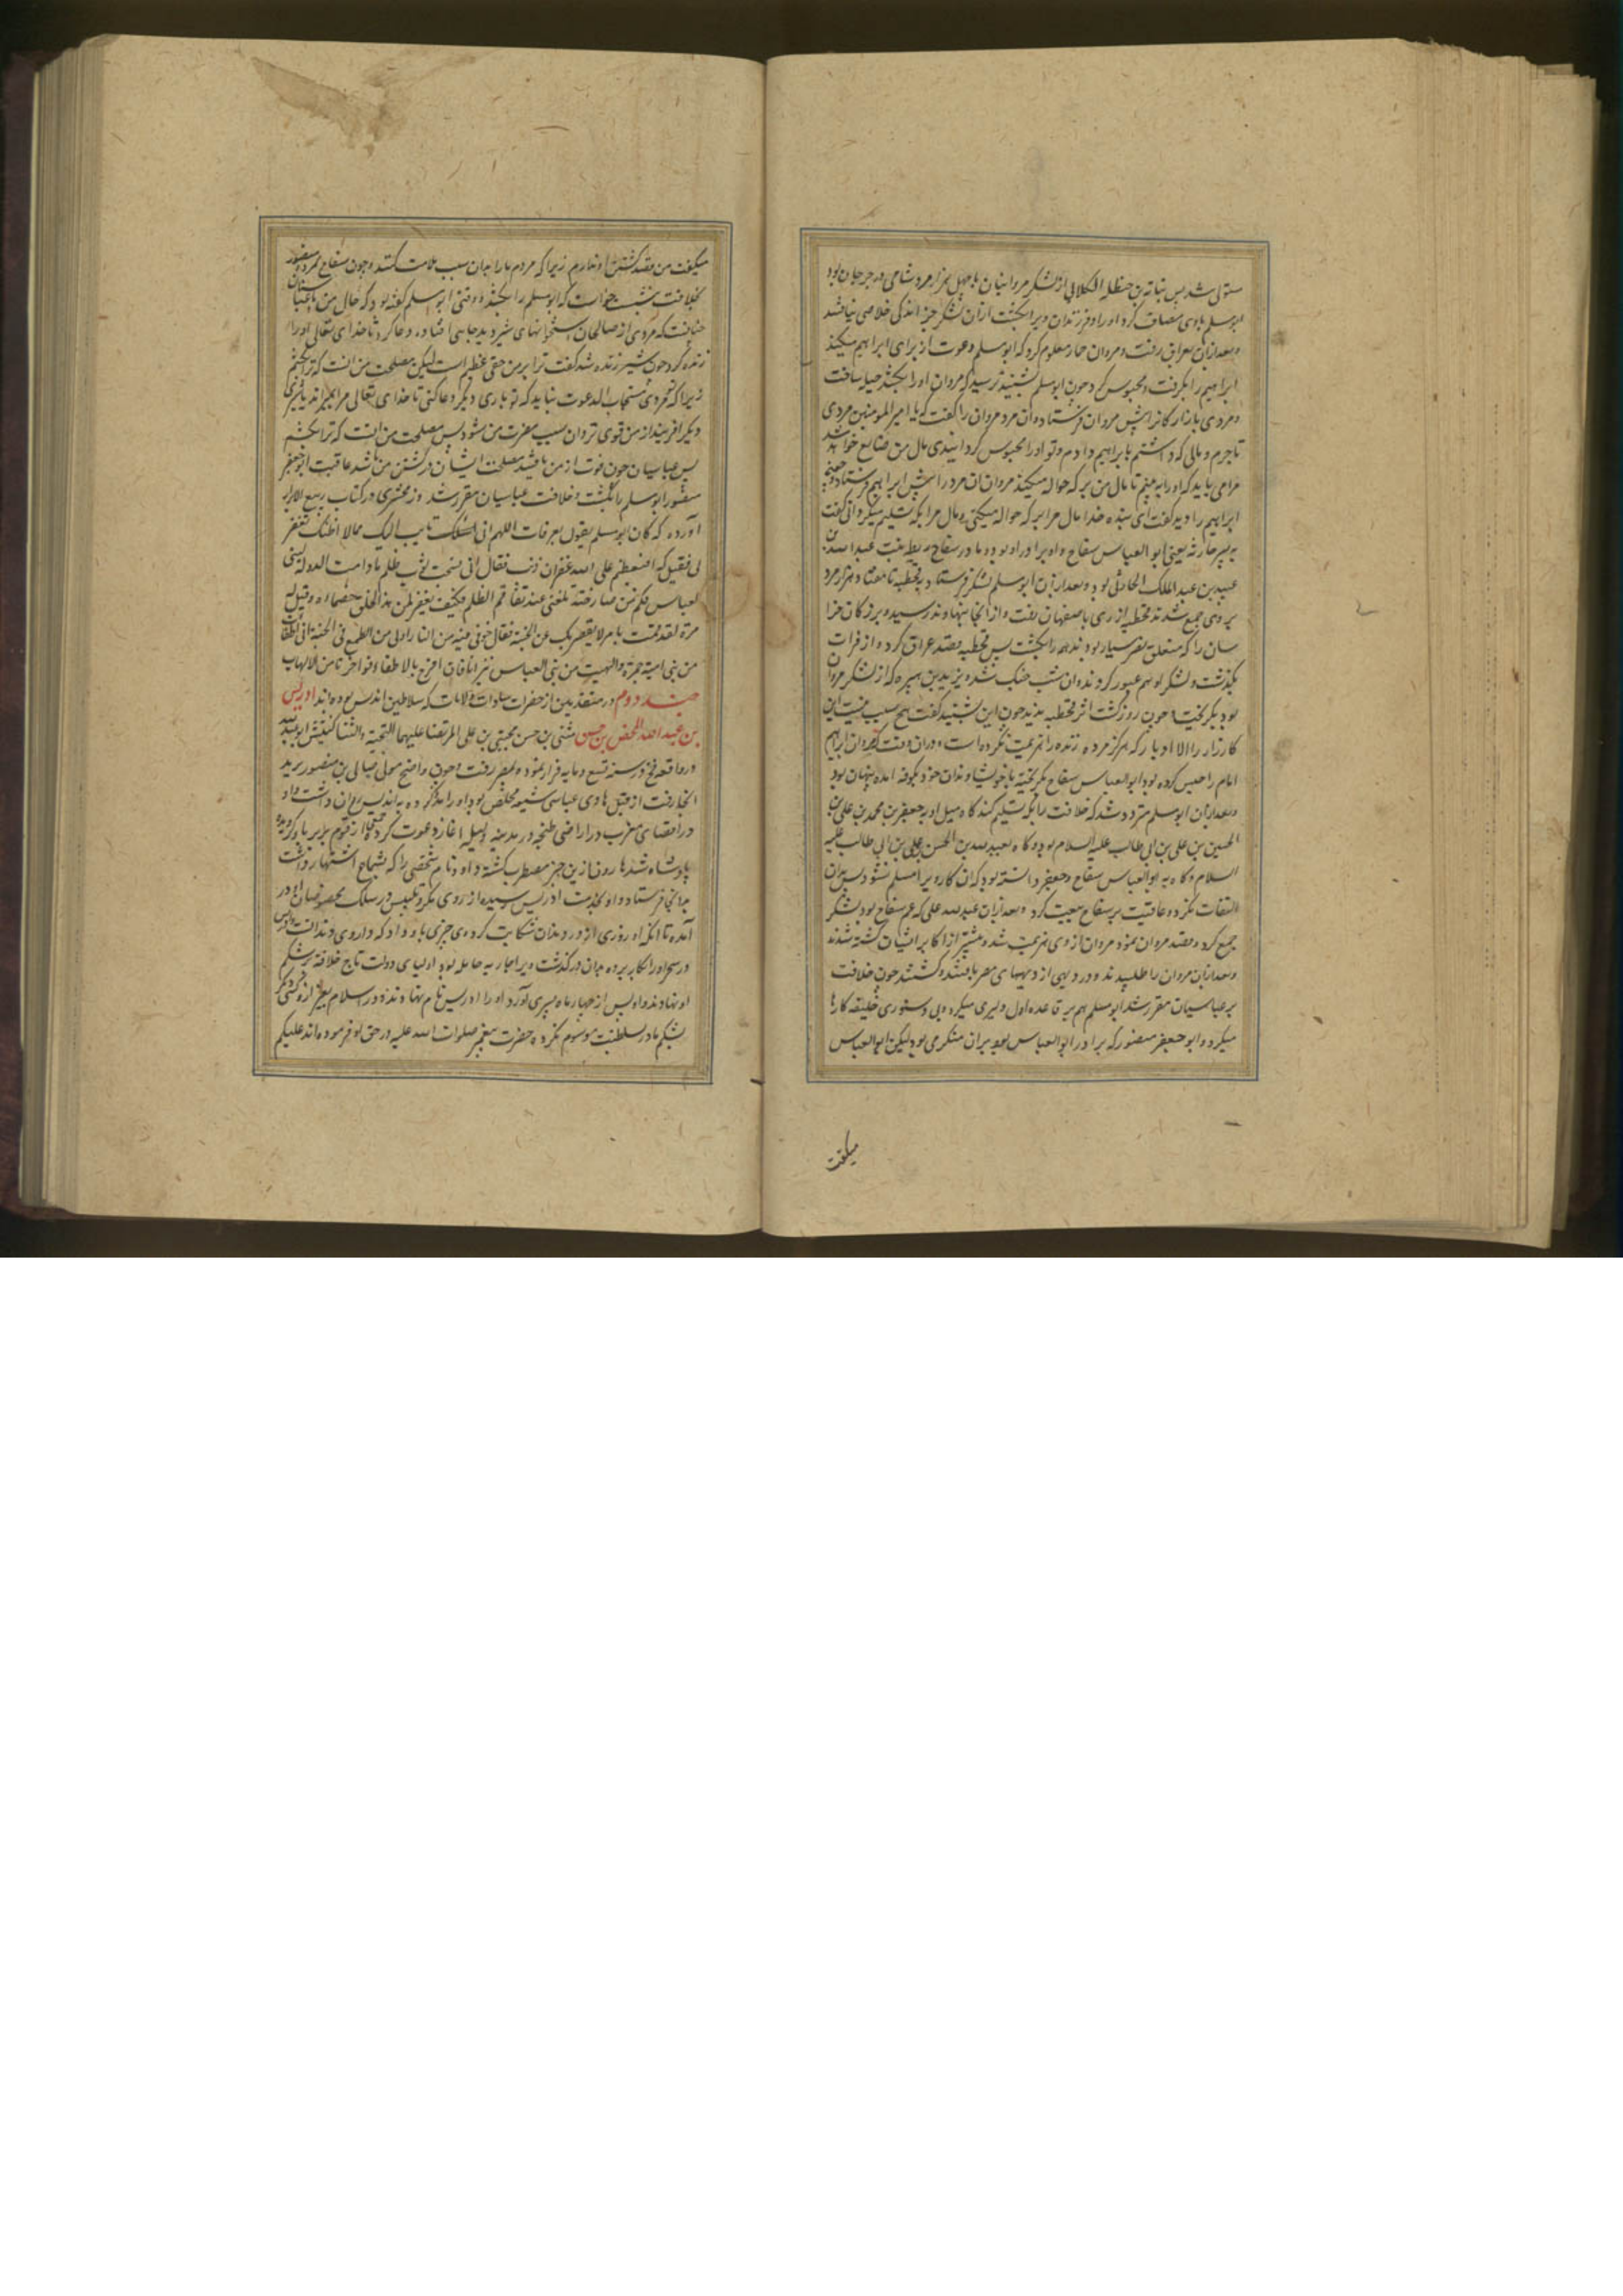 مستولی شد پس نباته بن حنظله الکلابی از لشکر مروانیان با چهل هزار مرد شامی در جرجان بود
ابو مسلم با وی مصاف کرد او را و فرزندان ویرا بکشت از آن لشکر جز اندکی خلاصی نیافتند
و بعد ازان بعراق رفت و مروان حمار معلوم کرد که ابو مسلم دعوت از برای ابراهیم میکند
ابراهیم را بگرفت و محبوس کرد چون ابو مسلم بشنید ترسید که مروان او را بکشد حیله ساخت
و مردی بازارکانرا پیش مروان فرستاد و آن مرد مروان را گفت که یا امیر المومنین مردی
تاجرم و مالی که داشتم بابراهیم دادم و تو او را محبوس کردانیدی مال من ضایع خواهد شد
مرا می باید که او را به بینم تا مال من بر که حواله میکند مروان آن مرد را پیش ابراهیم فرستاد چون
ابراهیم را دید گفت ای بنده خدا مال مرا بر که حواله میکنی و مال مرا بکه تسلیم میکردانی گفت
به پسر حارثه یعنی ابو العباس سفاح و او برادر او بود و مادر سفاح ریطه بنت عبد الله بن
عبید بن عبد الملک الحارثی بود و بعد ازان ابو مسلم لشکر فرستاد به قحطبه تا هفتاد هزار مرد
بر وی جمع شدند قحطبه از ری باصفهان رفت و از انجا بنهاوند رسید و بزرکان خرا
سان را که متعلق نصر سیار بودند همه را بکشت پس قحطبه قصد عراق کرد و از فرات
بگذشت و لشکر او هم عبور کردند و آن شب جنک شد و یزید بن هبیره که از لشکر مروان
بود بگریخت چون روز گشت اثر قحطبه ندید چون این بشنید گفت هیچ سبب نیست این
کارزار را الا ادبار که هرگز مرده زنده را هزیمت نکرده است و در آن وقت که مروان ابراهیم
امام را حبس کرده بود ابو العباس سفاح بگریخته با خویشاوندان خود بکوفه آمده پنهان بود
و بعد ازان ابو مسلم متردد شد که خلافت را بکه تسلیم کند گاه میل او به جعفر بن محمد بن علی بن
الحسین بن علی بن ابی طالب علیه السلام بود و گاه بعبید الله بن الحسن بن علی بن ابی طالب علیه
السلام و گاه به ابو العباس سفاح و جعفر دانسته بود که آن کار ویرا مسلم نشود پس بدان
التفات نکرد و عاقبت بر سفاح بیعت کرد و بعد ازان عبد الله علی که عم سفاح بود لشکر
جمع کرد و قصد مروان نمود مروان از وی هزیمت شد و بیشتر از اکابر ایشان کشته شدند
و بعد ازان مروان را طلبیدند و در دیهی از دیههای مصر یافتند و کشتند چون خلافت
بر عباسیان مقرر شد ابو مسلم هم بر قاعده اول دلیری میکرد و بی دستوری خلیفه کارها
میکرد و ابو جعفر منصور که برادر ابو العباس بود بر آن منکر می بود لیکن ابو العباس
میگفت
میگفت من قصد کشتن او ندارم زیرا که مردم ما را بدان سبب ملامت کنند و چون سفاح بمرد و منصور
بخلافت بنشست خواست که ابو مسلم را بکشد و وقتی ابو مسلم گفته بود که حال من با عباسیان
چنانست که مردی از صالحان استخوانهای شیر دید جایی افتاده دعا کرد تا خدای تعالی او را
زنده کرد چون شیر زنده شد گفت ترا بر من حقی عظیم است لیکن مصلحت من آنست که ترا بکشم
زیرا که تو مردی مستجاب الدعوت نباید که تو باری دیگر دعا کنی تا خدای تعالی مرا بمیراند یا شیری
دیگر افریند از من قوی تر و آن سبب مضرت من شود پس مصلحت من آنست که ترا بکشم
پس عباسیان چون قوت از من یافتند مصلحت ایشان در کشتن من باشد عاقبت ابو جعفر
منصور ابو مسلم را بکشت و خلافت عباسیان مقرر شد و زمخشری در کتاب ربیع الابرار
آورده که کان ابو مسلم یقول بعرفات اللهم انی تایب الیک مما لا اظنک تغفر
لی فقیل له افیعظم علی الله غفران ذنب فقال انی نسجت ثوب ظلم ما دامت الدوله لبنی
العباس فکم من صارخة تلعننی عند تفاقم الظلم فکیف یغفر لمن هذا الخلق خصماؤه و قیل له
مرة لقد قمت بامر لا یقصر بک عن الجنة فقال خوفی فیه من النار اولی من الطمع فی الجنة انی اطفأت
من بنی امیه جمرة و الهبت من بنی العباس نیرانا فان افرح بالاطفاء فواحزنا من الالهاب
جند دوم در متقدمین از حضرات سادات ولات که سلاطین اندلس بوده اند ادریس
بن عبد الله المحض بن حسن مثنی بن حسن مجتبی بن علی المرتضا علیهما التحیة والثنا کنیتش ابو عبد الله
در واقعه فخ در سنه تسع و مایه فرار نموده بمصر رفت و چون واضح مولی صالح بن منصور برید
انجا رفت از قبل هادی عباسی شیعه مخلص بود او را به اندلس روان داشت و او
در اقصای مغرب در اراضی طنجه در مدینه ولیله اغاز دعوت کرد از قوم بربر با و گرویده
پادشاه شد هارون ازین خبر مضطرب گشته داود نام شخصی را که بشماخ اشتهار داشت
بدانجا فرستاد و او بخدمت ادریس رسیده از روی مکر و تلبیس در سلک مخصوصان او در
آمده تا آنکه او روزی از درد دندان شکایت کرد وی چیزی باو داد که داروی دندانست و ادریس
در سحر او را بکار برده بدان درگذشت و ویرا جاریه حامله بود اولیای دولت تاج خلافت بر شکم
او نهادند و او پس از چهار ماه پسری آورد او را ادریس نام نهادند و در اسلام بغیر از وی کسی را
بشکم مادر بسلطنت موسوم نکرده حضرت پیغمبر صلوات الله علیه در حق او فرموده اند علیکم